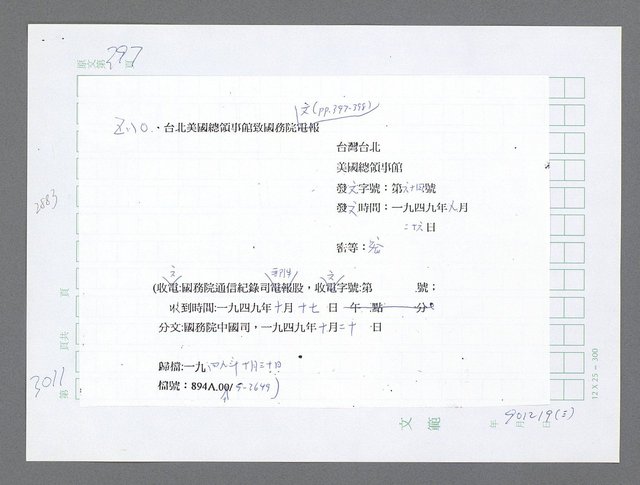 原文第297頁
文(pp.397-398)
五.10.、台北美國總領事館致國務院電報
台灣台北
美國總領事館
發文字號：第六十四號
發文時間：一九四九年八月
二十六日
密等：密
(收文:國務院通信紀錄司電報股，收文字號:第 號；
收到時間:一九四九年十月十七日 午 點 分。
分文:國務院中國司，一九四九年十月二十日
歸檔:一九四九年十月三十日
檔號：894A.00/9-2649)
2883
3011
第 頁共 頁
文範
年 月 日
901219(三)
12 X 25 - 300